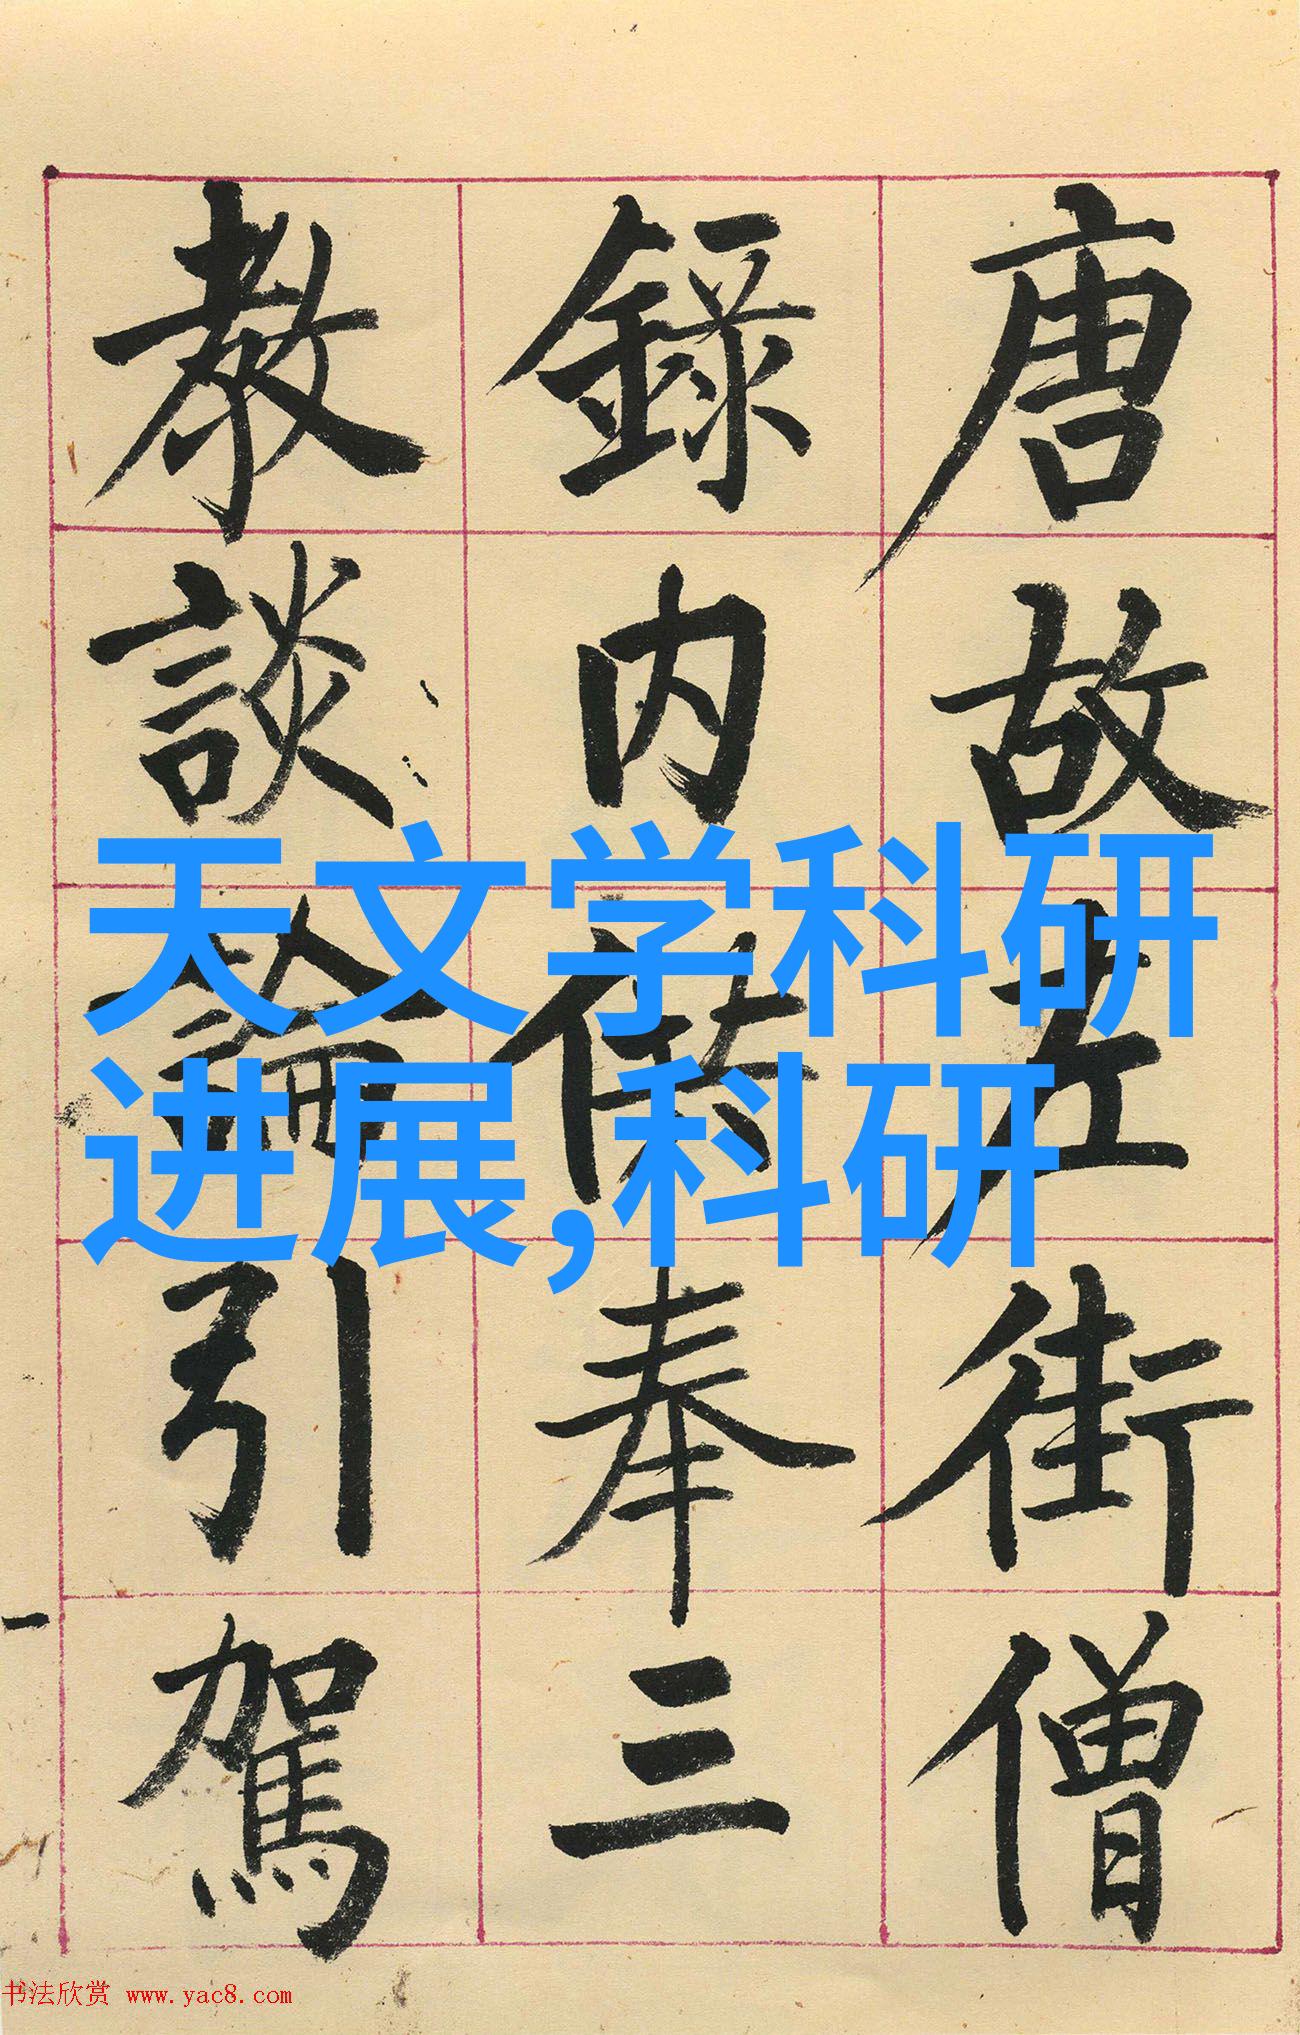 唐故左街僧
錄內供奉三
教談論引駕
天文学科研
进展,科研
书法欣赏 www.yac8.com